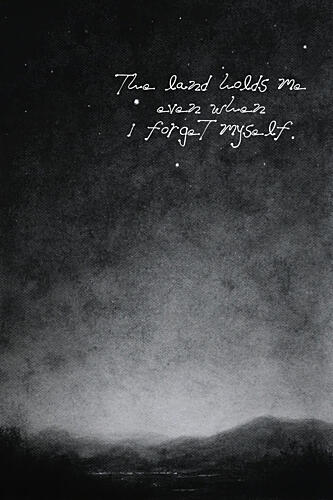 The land holds me
even when
I forget myself.